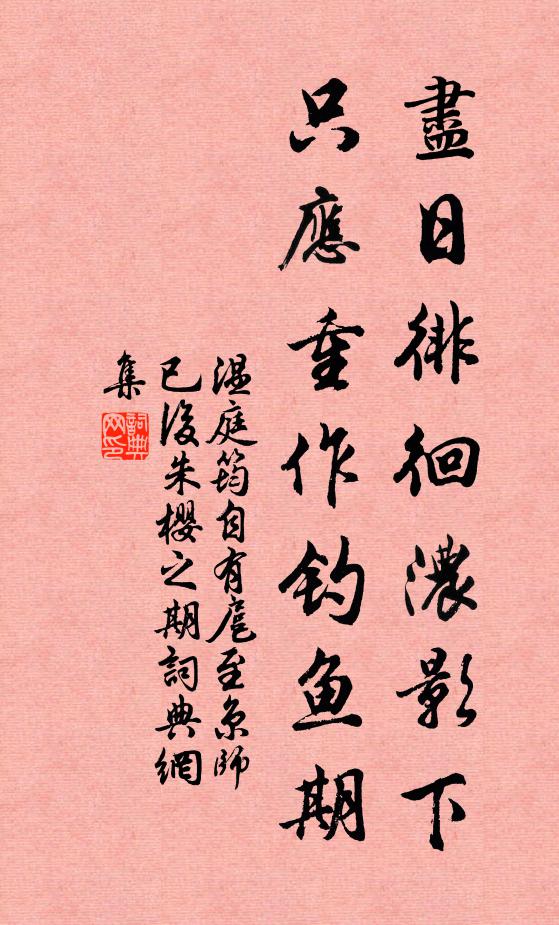 盡日徘徊濃影下
只應重作釣魚期
溫庭筠自有扈至京師
已後朱櫻之期詞典網
集
詞典
网印